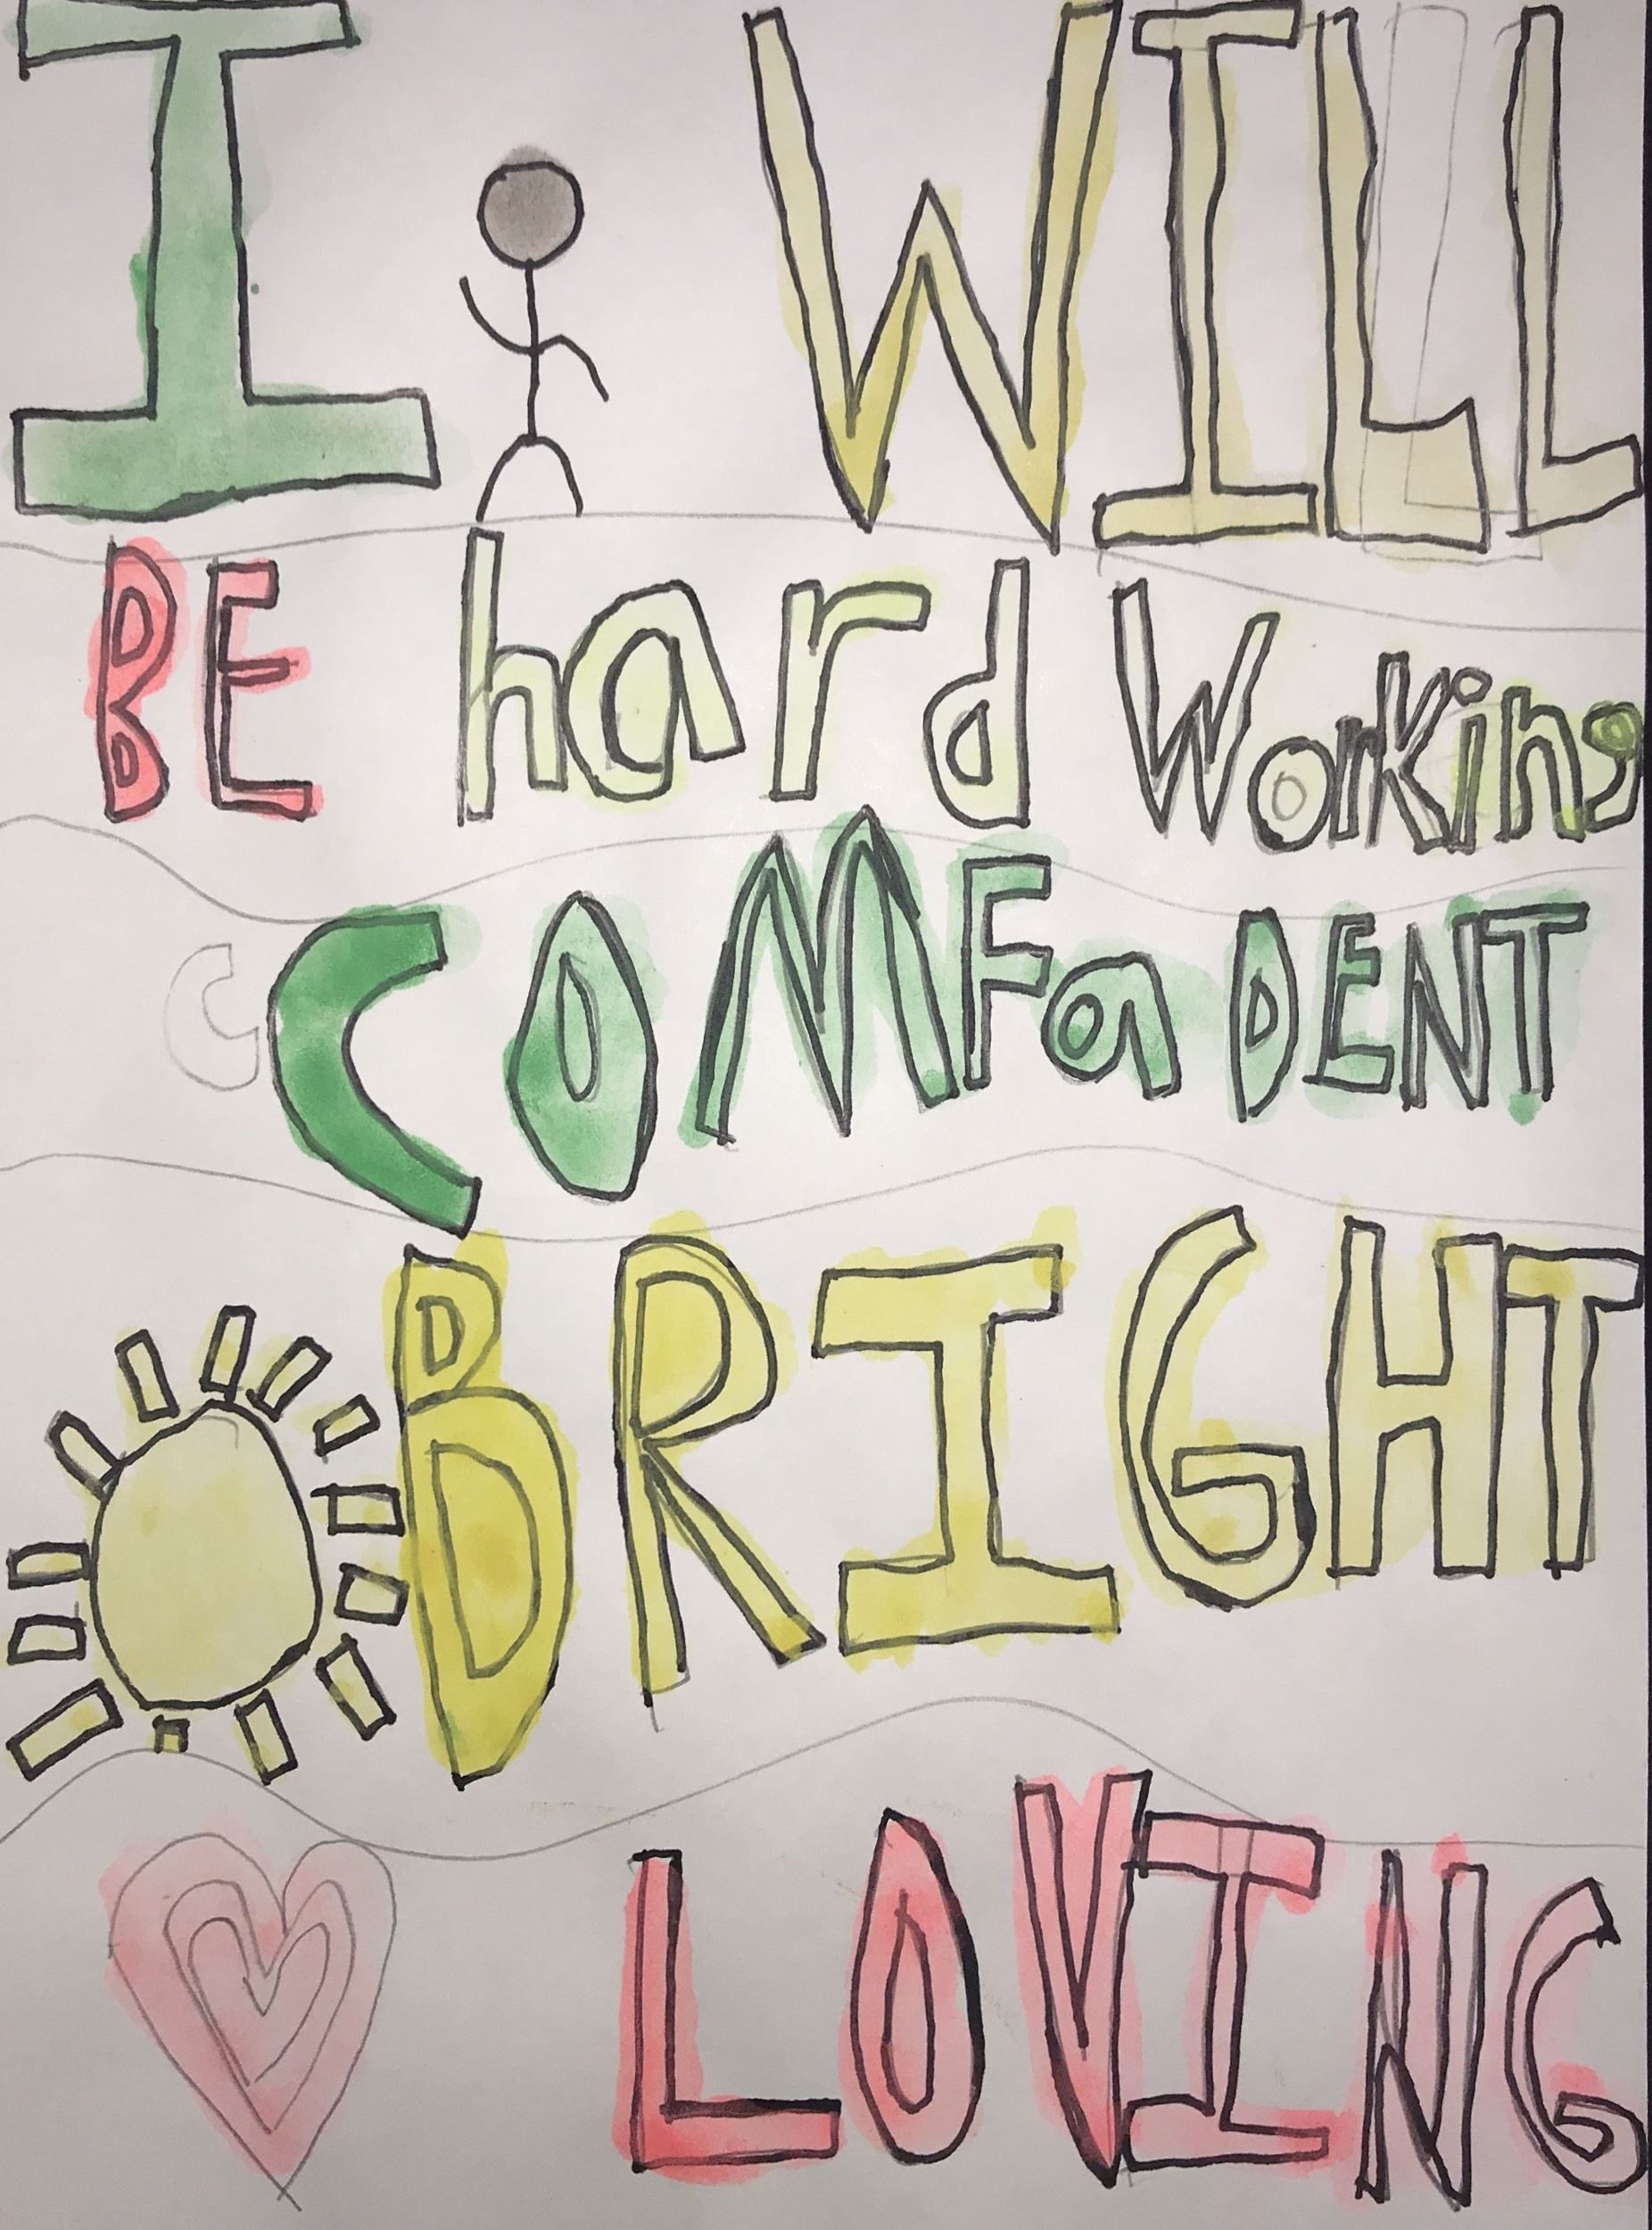 I WILL
BE hard Working
COMFaDENT
BRIGHT
LOVING